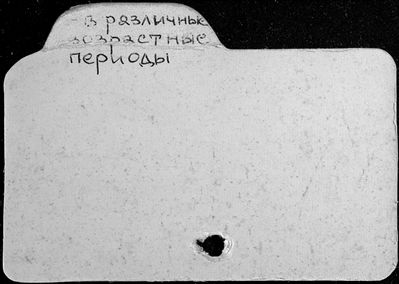 - в различные
возрастные
периоды